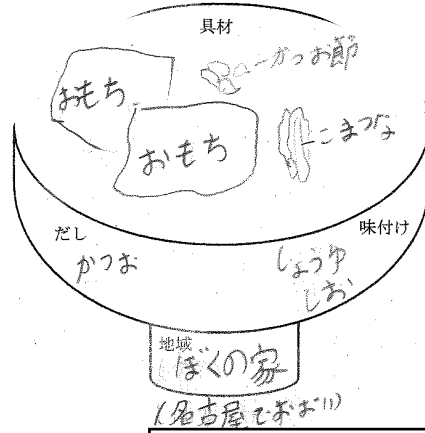 具材
かつお節
おもち
おもち
こまつな
だし
かつお
味付け
しょうゆ
しお
地域
ぼくの家
(名古屋でおおい)